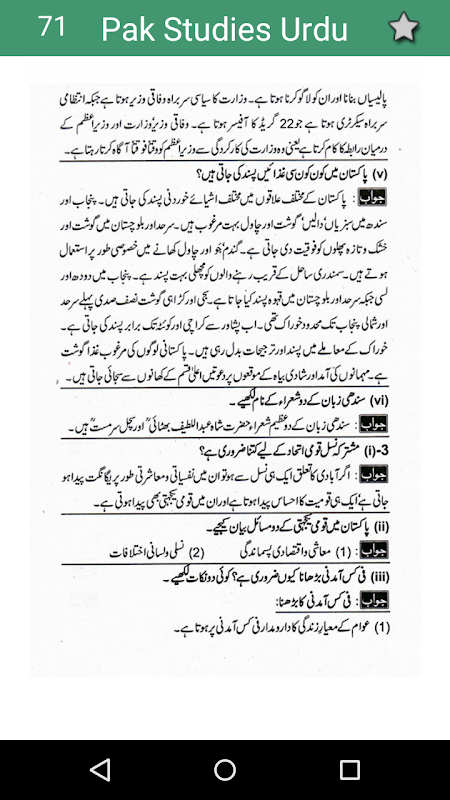 71 Pak Studies Urdu
پالیسیاں بنانا اور ان کو لاگو کرنا ہوتا ہے۔ وزارت کا سیاسی سربراہ وفاقی وزیر ہوتا ہے جبکہ انتظامی
سربراہ سیکرٹری ہوتا ہے جو 22 گریڈ کا آفیسر ہوتا ہے۔ وفاقی وزیر وزارت اور وزیر اعظم کے
درمیان رابطہ کا کام کرتا ہے یعنی وہ وزارت کی کارکردگی سے وزیر اعظم کو وقتاً فوقتاً آگاہ کرتا رہتا ہے۔
(v) پاکستان میں کون کون سی غذائیں پسند کی جاتی ہیں؟
جواب : پاکستان کے مختلف علاقوں میں مختلف اشیائے خوردنی پسند کی جاتی ہیں۔ پنجاب اور
سندھ میں سبزیاں، دالیں، گوشت اور چاول بہت مرغوب ہیں۔ سرحد اور بلوچستان میں گوشت اور
خشک و تازہ پھلوں کو فوقیت دی جاتی ہے۔ گندم، جو اور چاول کھانے میں خصوصی طور پر استعمال
ہوتے ہیں۔ سمندری ساحل کے قریب رہنے والوں کو مچھلی بہت پسند ہے۔ پنجاب میں دودھ اور
لسی جبکہ سرحد اور بلوچستان میں قہوہ پسند کیا جاتا ہے۔ سجی اور کڑاہی گوشت نصف صدی پہلے سرحد
اور شمالی پنجاب تک محدود خوراک تھی۔ اب پشاور سے کراچی اور کوئٹہ تک برابر پسند کی جاتی ہے۔
خوراک کے معاملے میں پسند اور ترجیحات بدل رہی ہیں۔ پاکستانی لوگوں کی مرغوب غذا گوشت
ہے۔ مہمانوں کی آمد اور شادی بیاہ کے موقعوں پر دعوتیں اعلیٰ قسم کے کھانوں سے سجائی جاتی ہیں۔
(vi) سندھی زبان کے دو شعراء کے نام لکھیے۔
جواب : سندھی زبان کے دو عظیم شعراء حضرت شاہ عبداللطیف بھٹائیؒ اور سچل سرمستؒ ہیں۔
3-(i) مشترکہ نسل قومی اتحاد کے لیے کتنا ضروری ہے؟
جواب : اگر آبادی کا تعلق ایک ہی نسل سے ہو تو ان میں نفسیاتی و معاشرتی طور پر یگانگت پیدا ہو
جاتی ہے، ایک ہی قومیت کا احساس پیدا ہوتا ہے اور ان میں قومی یکجہتی بھی پیدا ہوتی ہے۔
(ii) پاکستان میں قومی یکجہتی کے دو مسائل بیان کیجیے۔
جواب : (1) معاشی و اقتصادی پسماندگی (2) نسلی و لسانی اختلافات
(iii) فی کس آمدنی بڑھانا کیوں ضروری ہے؟ کوئی دو نکات لکھیے۔
جواب : فی کس آمدنی کا بڑھنا:
(1) عوام کے معیارِ زندگی کا دارومدار فی کس آمدنی پر ہوتا ہے۔